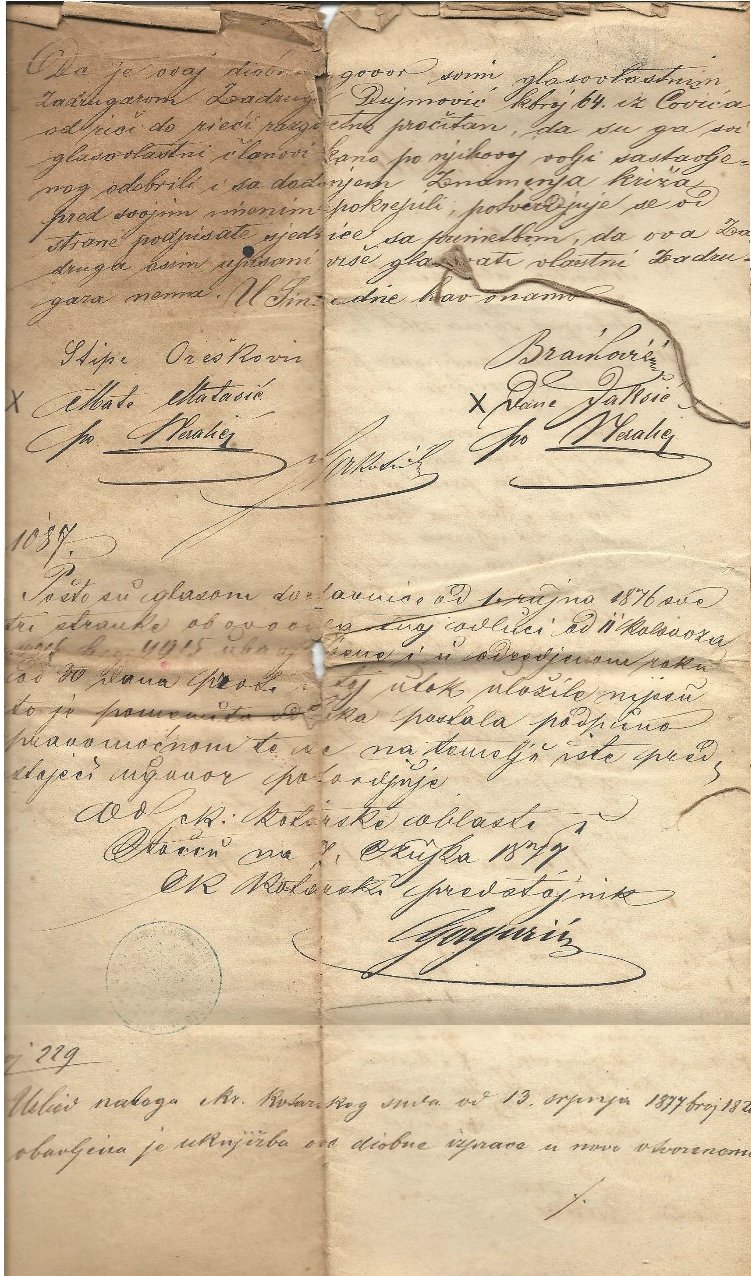 Da je ovaj diobni govor svim glasovlastnim
Zadrugarom Zadruge Dujmović kbroj 64. iz Čovića
od rieči do rieči razgovetno pročitan, da su ga svi
glasovlastni članovi kano po njihovoj volji sastavlje-
nog odobrili i sa dodanjem Znamenja križa
pred svojim imenim pokrepili, potvrdjuje se od
strane podpisate sjednice sa primetbom, da ova Za
druga osim upisani više glasovati vlastni Zadru-
gara nema. U dne kao onamo
Stipe Orešković
X Mate Matasić X Dane Jakšić
po po
1037.
Pošto su glasom dostavnice od rujna 1876 sve
tri stranke odluci od 11 kolovoza
i u odredjenom roku
od 30 dana proti istoj utok uložile nijesu
to je pomenuta odluka postala podpuno
pravomoćnom te se na temelju iste pred
stojeći ugovor potvrdjuje
Od ck. kotarske oblasti
Otočcu na 7. Ožujka 1877
CK Kotarski predstojnik
229
Usled naloga kr. kotarskog suda od 13. srpnja 1877 broj 182
obavljena je uknjižba ove diobne izprave u novo otvorenom